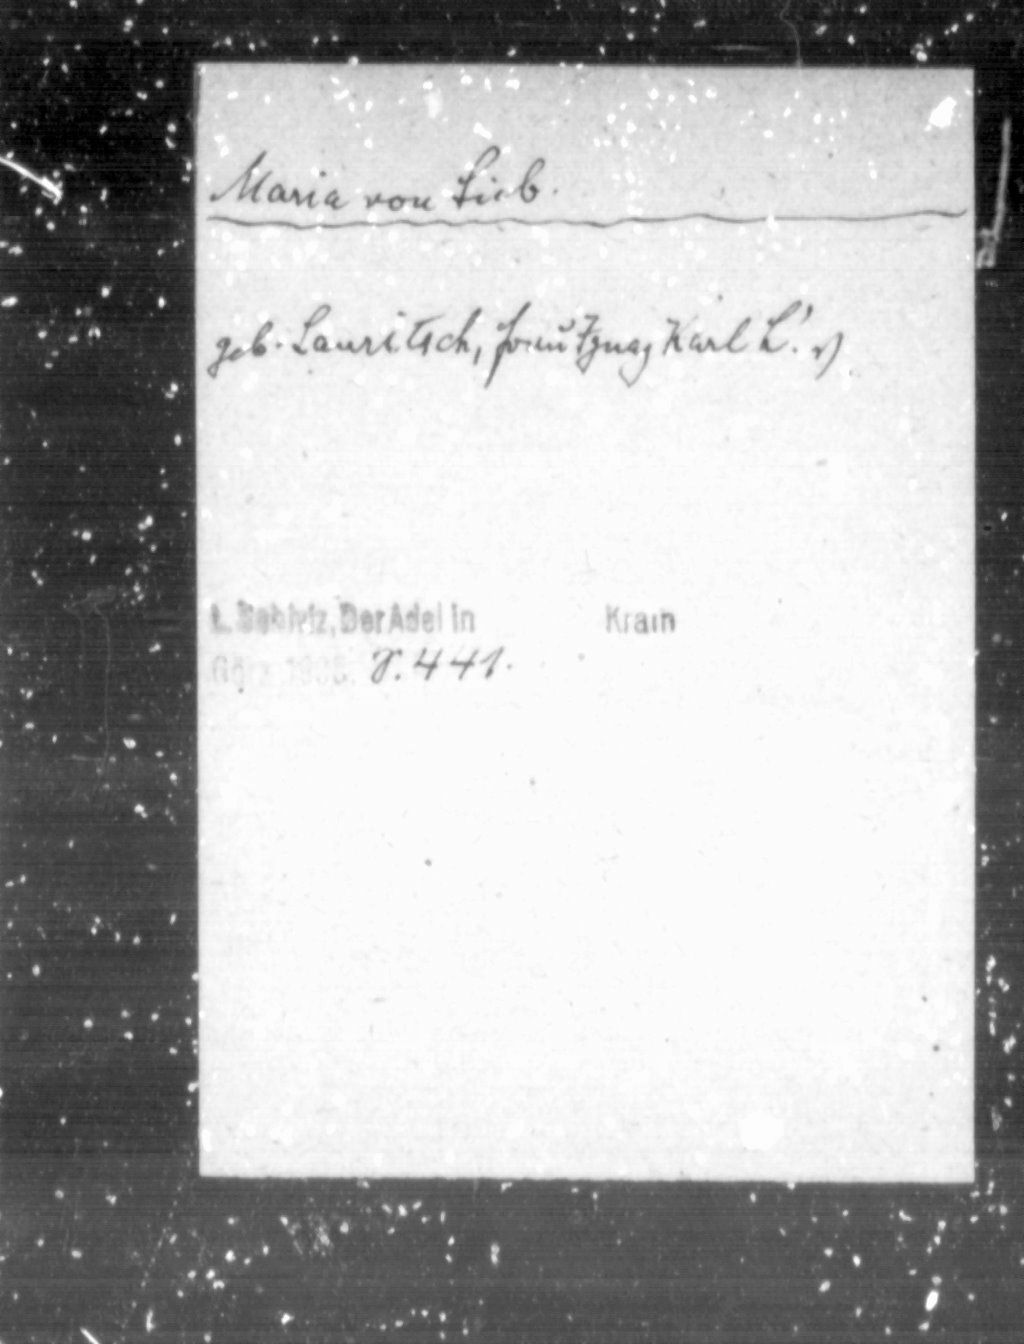 Maria von Lieb.
geb. Lauritsch, Frau Ignaz Karl L's
L. Schiviz, Der Adel in Krain
Görz 1905. S. 441.